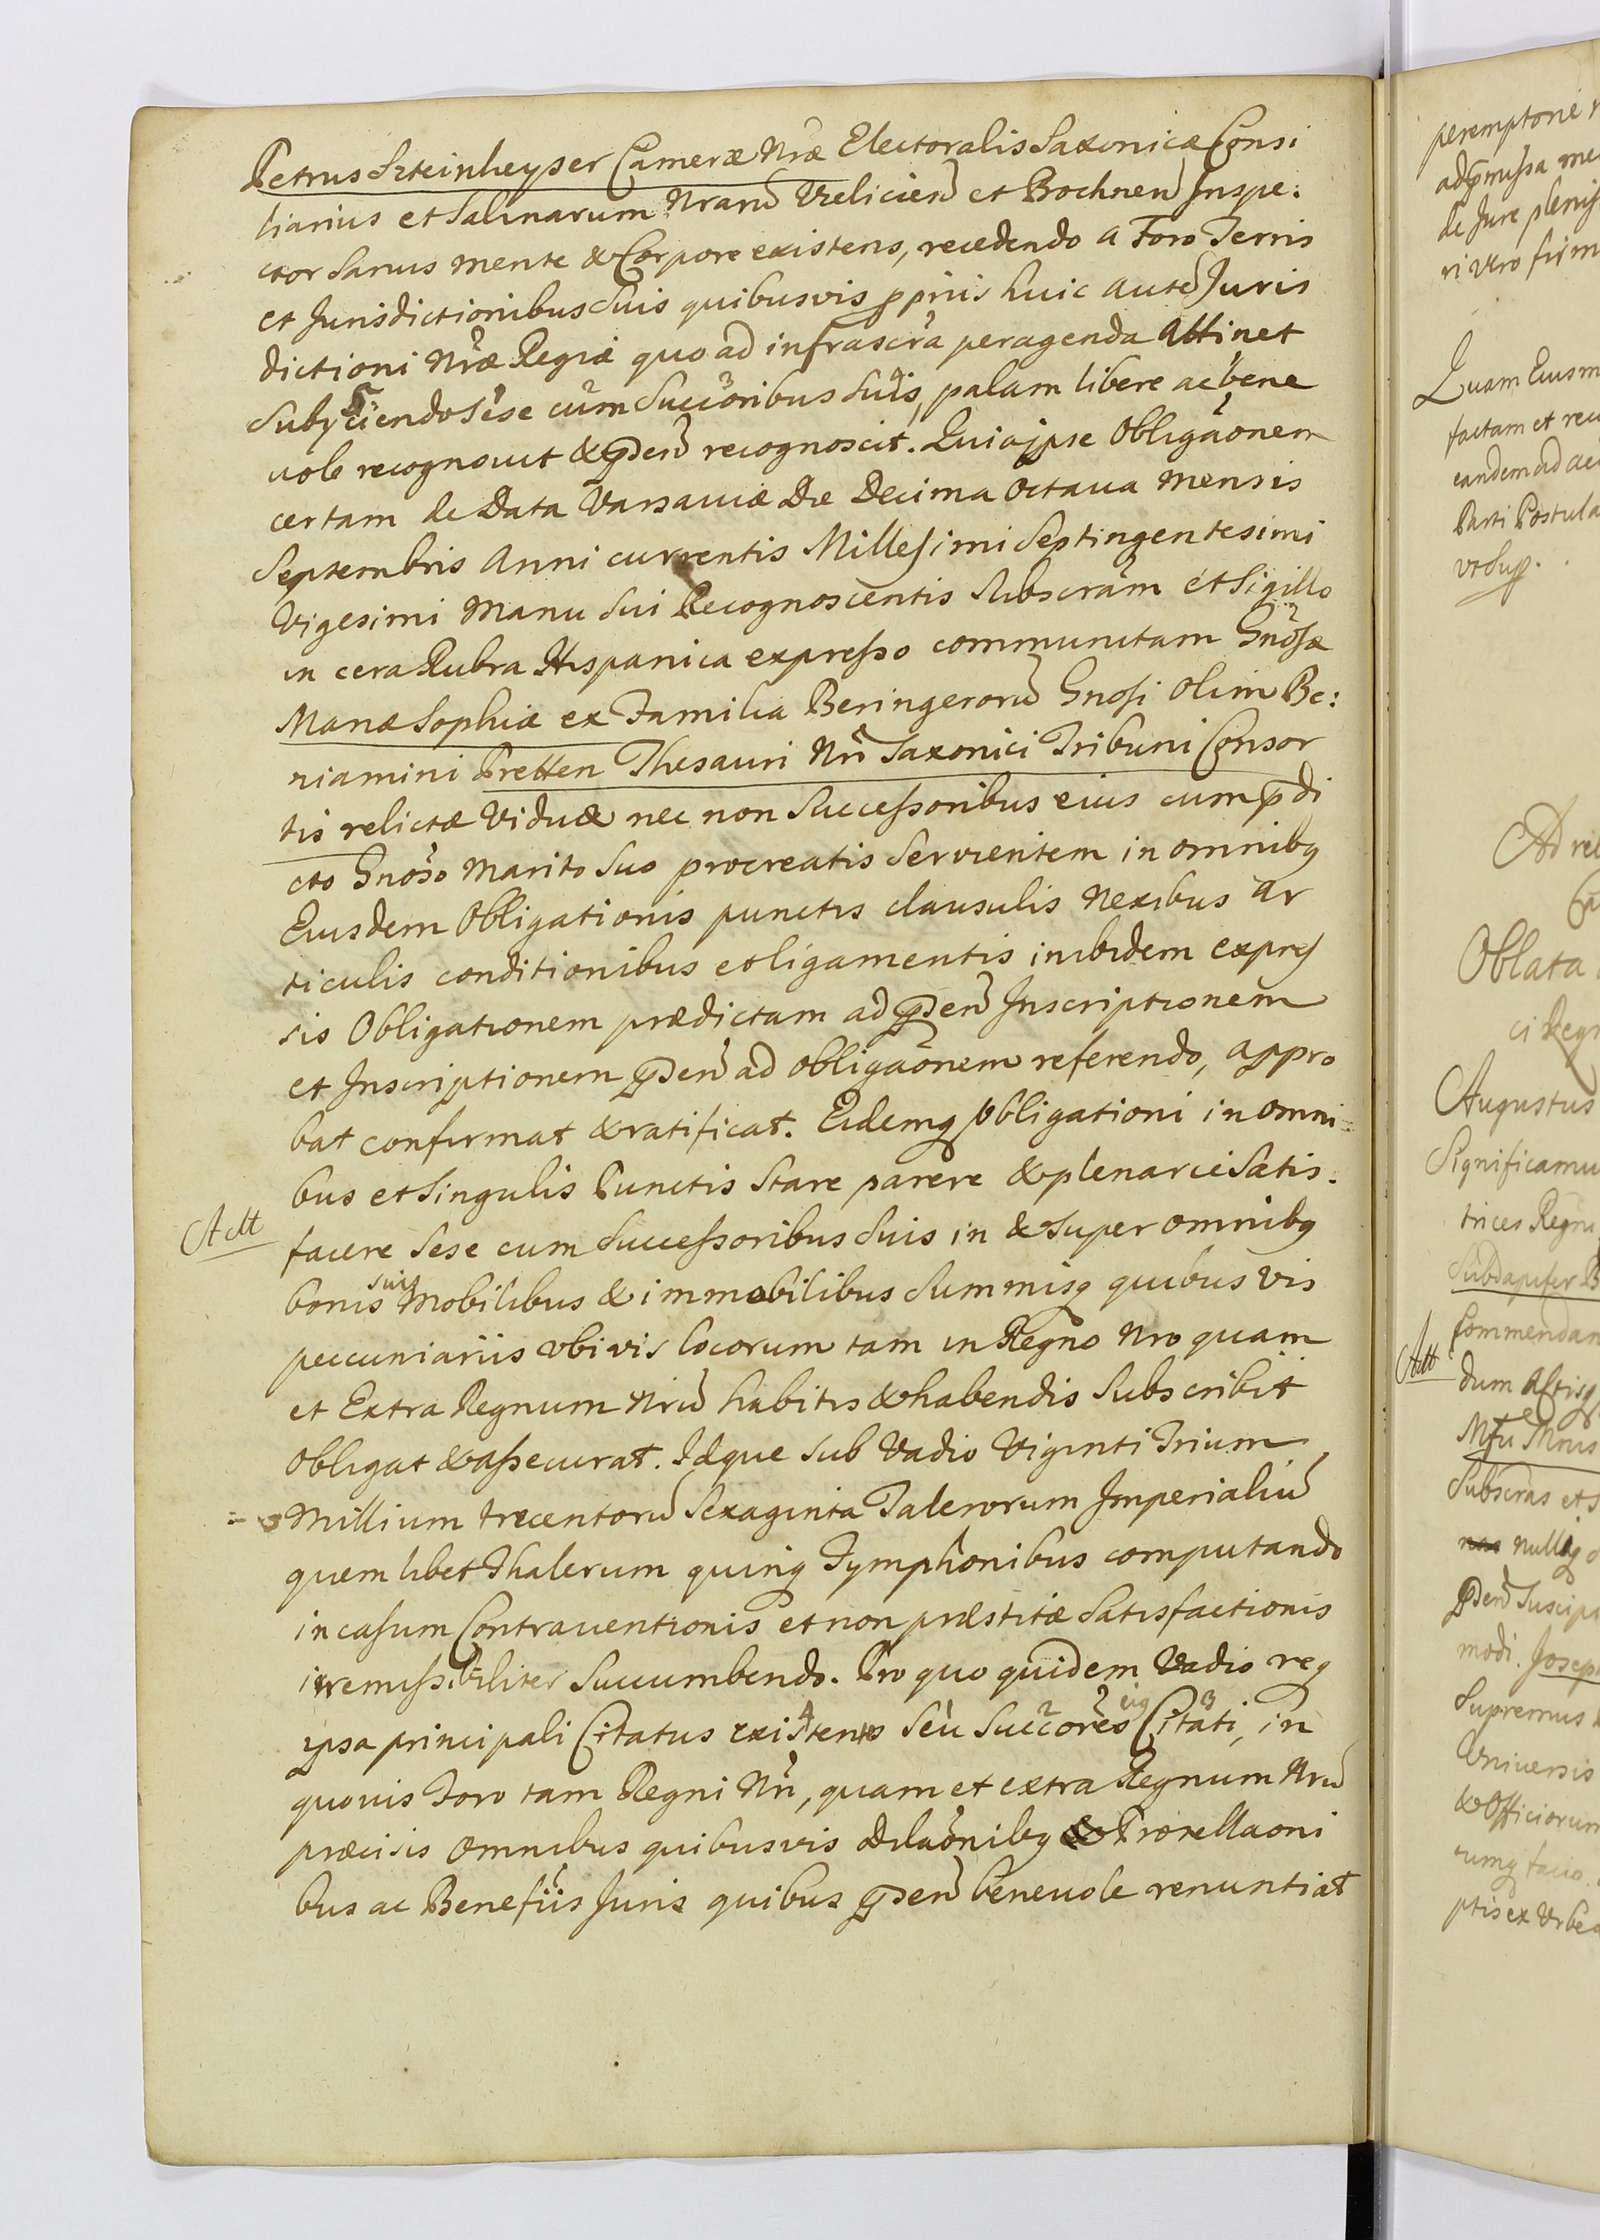 Petrus Szteinheyser Cameræ Nræ Electoralis Saxonicæ Consi
liarius et Salinarum Nrarũ Vieliciens̃ et Bochnens̃ Inspe:
ctor Sanus mente & Corpore existens, recedendo a Foro Terris
et Jurisdictionibus Suis quibusvis ppriis huic autẽ Juris
dictioni Nræ Regiæ quo ad infrascrã peragenda Attinet
Subyciendo Sese cum Succõribus Suis, palam libere ac bene
uole recognouit & p̃ñ recognoscit. Quia ipse Obligãonem
certam de Data Varsaviæ Die Decima Octaua Mensis
Septembris Anni currentis Millesimi Septingentesimi
Vigesimi Manu Sui Recognoscentis Subscrãm et Sigillo
in cera Rubra Hispanica expresso communitam Gnõsæ
Mariæ Sophiæ ex Familia Beringerorũ Gnosi olim Be:
niamini Pretten Thesauri Nri Saxonici Tribuni Consor
tis relictæ Viduæ nec non Successoribus eius cum p̃di
cto Gnoso Marito Suo procreatis Servientem in omnibq
Eiusdem Obligationis punctis clausulis Nexibus Ar
ticulis conditionibus et ligamentis inibidem expres
sis Obligationem prædictam ad p̃ñ Inscriptionem
et Inscriptionem p̃ñ ad obligãonem referendo, appro
bat confirmat & ratificat. Eidemq Obligationi in omni=
bus et Singulis Punctis Stare parere & plenarie Satis.
Actt
facere Sese cum Successoribus Suis in & Super omnibq
bonis suis Mobilibus & immobilibus Summisq quibus vis
peccuniariis vbi vis locorum tam in Regno Nro quam
et Extra Regnum Nrũ habitis & habendis Subscribit
Obligat & assecurat. Idque Sub Vadio Viginti Trium
Millium trecentorũ Sexaginta Talerorum Imperialiũ
quemlibet Thalerum quinq Tymphonibus computando
in casum Contrauentionis et non præstitæ Satisfactionis
irremissibiliter Succumbendo. Pro quo quidem Vadio req
ipsa principali Citatus existens seu Succores eiq Citati, in
quouis Foro tam Regni Nri, quam et extra Regnum Nrũ
præcisis omnibus quibusvis Dilãonibq & Proxellaoni
bus ac Benefiis Juris quibus p̃ñ beneuole renuntiat
peremptorie
de Jure
ri vero
Quam Eiusm
factam et
eandem ad
Parti Postula
vt Sup.
Ad
Oblata
ci Regn
Augustus
Significamu
trices Regni
Subdapifer
Commendan
Actt
dum
Subscras et
nulliq
modi. Joseph
Supremus
Vniuersis
& Officiorum
rumq facio.
ptis ex Vrbe